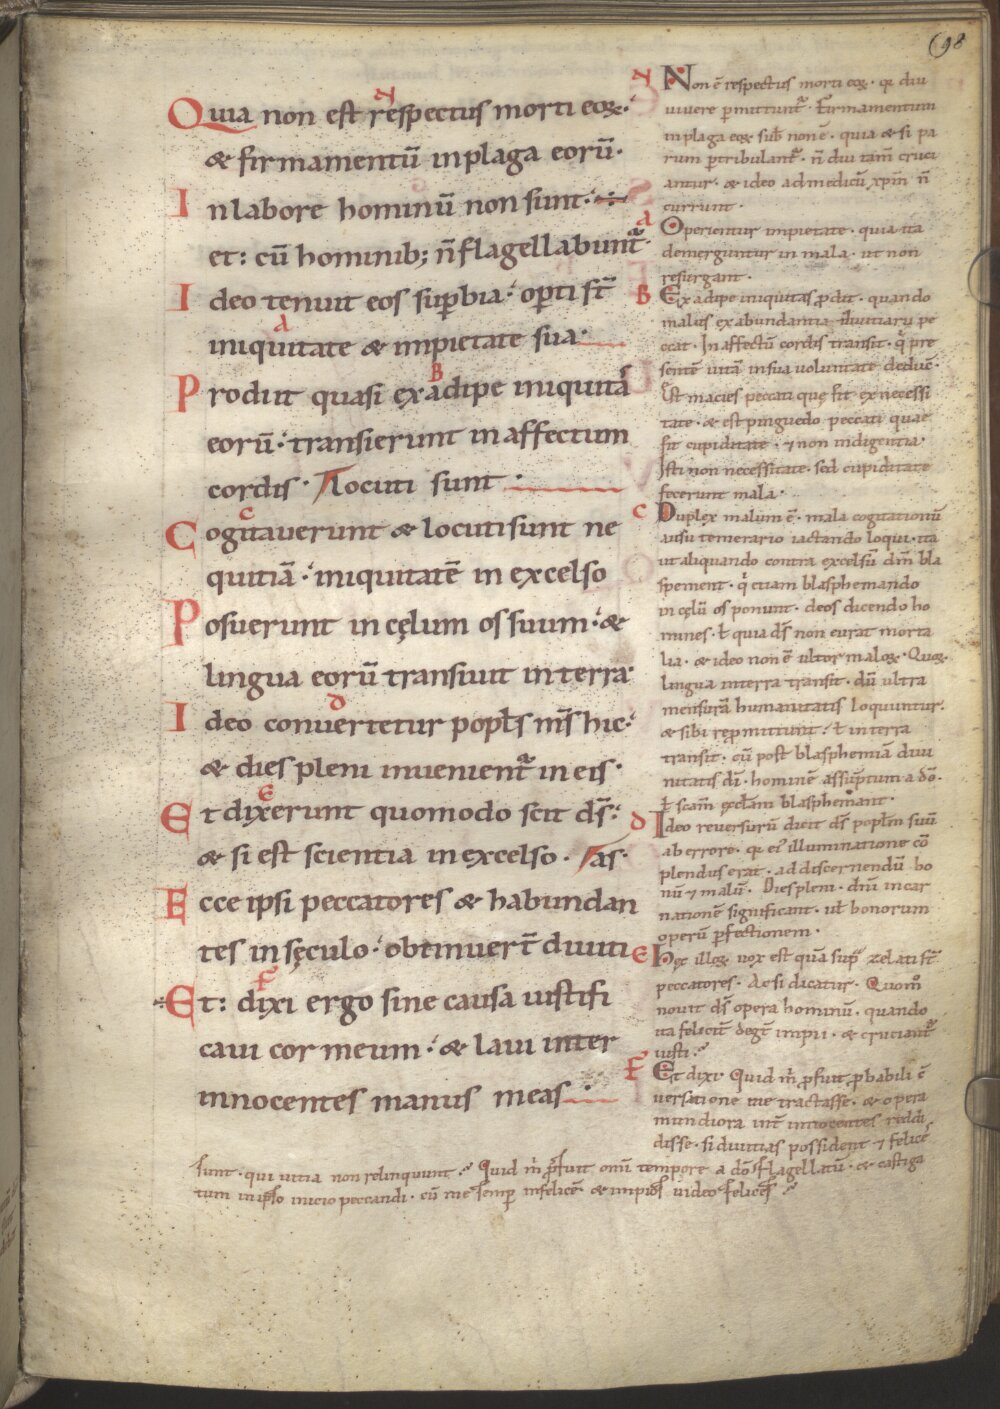 (98
Quia non est respectus morti eoꝝ·
& firmamentū in plaga eorū·
In labore hominū non sunt·
et: cū hominib; n̄ flagellabunt᷑·
Ideo tenuit eos suꝑbia· oꝑti st̄
iniquitate & impietate sua·
Prodiit quasi ex adipe iniquitā
eorū· transierunt in affectum
cordis· locuti sunt·
Cogitaverunt & locuti sunt ne
quitiā· iniquitatē in excelso
Posuerunt in cęlum os suum· &
lingua eorū transivit in terra·
Ideo convertetur popl̄s m̄s hic·
& dies pleni invenient᷑ in eis·
Et dixerunt quomodo scit d̄s·
& si est scientia in excelso· as·
Ecce ipsi peccatores & habundan
tes in sęculo· obtinuer̄t diviti
Et: dixi ergo sine causa iustifi
cavi cor meum· & lavi inter
innocentes manus meas·
N Non ē respectus morti eoꝝ· qꝛ diu
vivere ꝑmittunt᷑· Firmamentum
in plaga eoꝝ sub̄ non ē· quia & si pa
rum ꝑtribulant᷑· n̄ diu tam̄ cruci
antur· & ideo ad medicū xp̄m n̄
currunt·
A Operientur impietate· quia ita
demerguntur in mala· ut non
resurgant·
B Ex adipe iniquitas ꝓdit· quando
malus ex abundantia divitiarū pe
ccat· In affectū cordis transit· q̇ pre
sentē vitā in sua voluntate deduc̄·
Est macies peccati quę fit ex necessi
tate· & est pinguedo peccati quae
fit cupiditate· ⁊ non indigentia·
Isti non necessitate· sed cupiditate
fecerunt mala·
C Duplex malum ē· mala cogitationū
ausu temerario iactando loqui· ita
ut aliquando contra excelsū dm̄ bla
spement· q̇ etiam blasphemando
in cęlū os ponunt· deos dicendo ho
mines· ł quia d̄s non curat morta
lia· & ideo non ē ultor maloꝝ· Quoꝝ
lingua in terra transit· dū ultra
mensurā humanitatis loquuntur·
& sibi reꝓmittunt· ł in terra
transit· cū post blasphemiā divi
nitatis dī· hominē assūptum a dō·
ł scam̄ eccłam blasphemant·
d Ideo reversurū dicit d̄s popłm suū
ab errore· qꝛ ei illuminatione cō
plendus erat· ad discernendū bo
nū ⁊ malū· Dies pleni· dn̄i incar
nationē significant· uł bonorum
operū ꝑfectionem·
E Hęc illoꝝ vox est qui suꝑ zelati st̄
peccatores· Ac si dicatur· Quom̊
novit d̄s opera hominū· quando
ita felicit̄ deg̅t impii· & cruciant᷑
iusti·
F Est dixi· Quid m̄ ꝓfuit ꝓbabili c̄
versatione me tractasse· & opera
mundiora int̄ innocentes reddi
disse· si divitias possident ⁊ felices
sunt· qui vitia non relinquunt· Quid m̄ ꝓfuit omī tempore a dō flagellatū· & castiga
tum in ipso inicio peccandi· cū me semꝑ infelicē· & impios video felices·